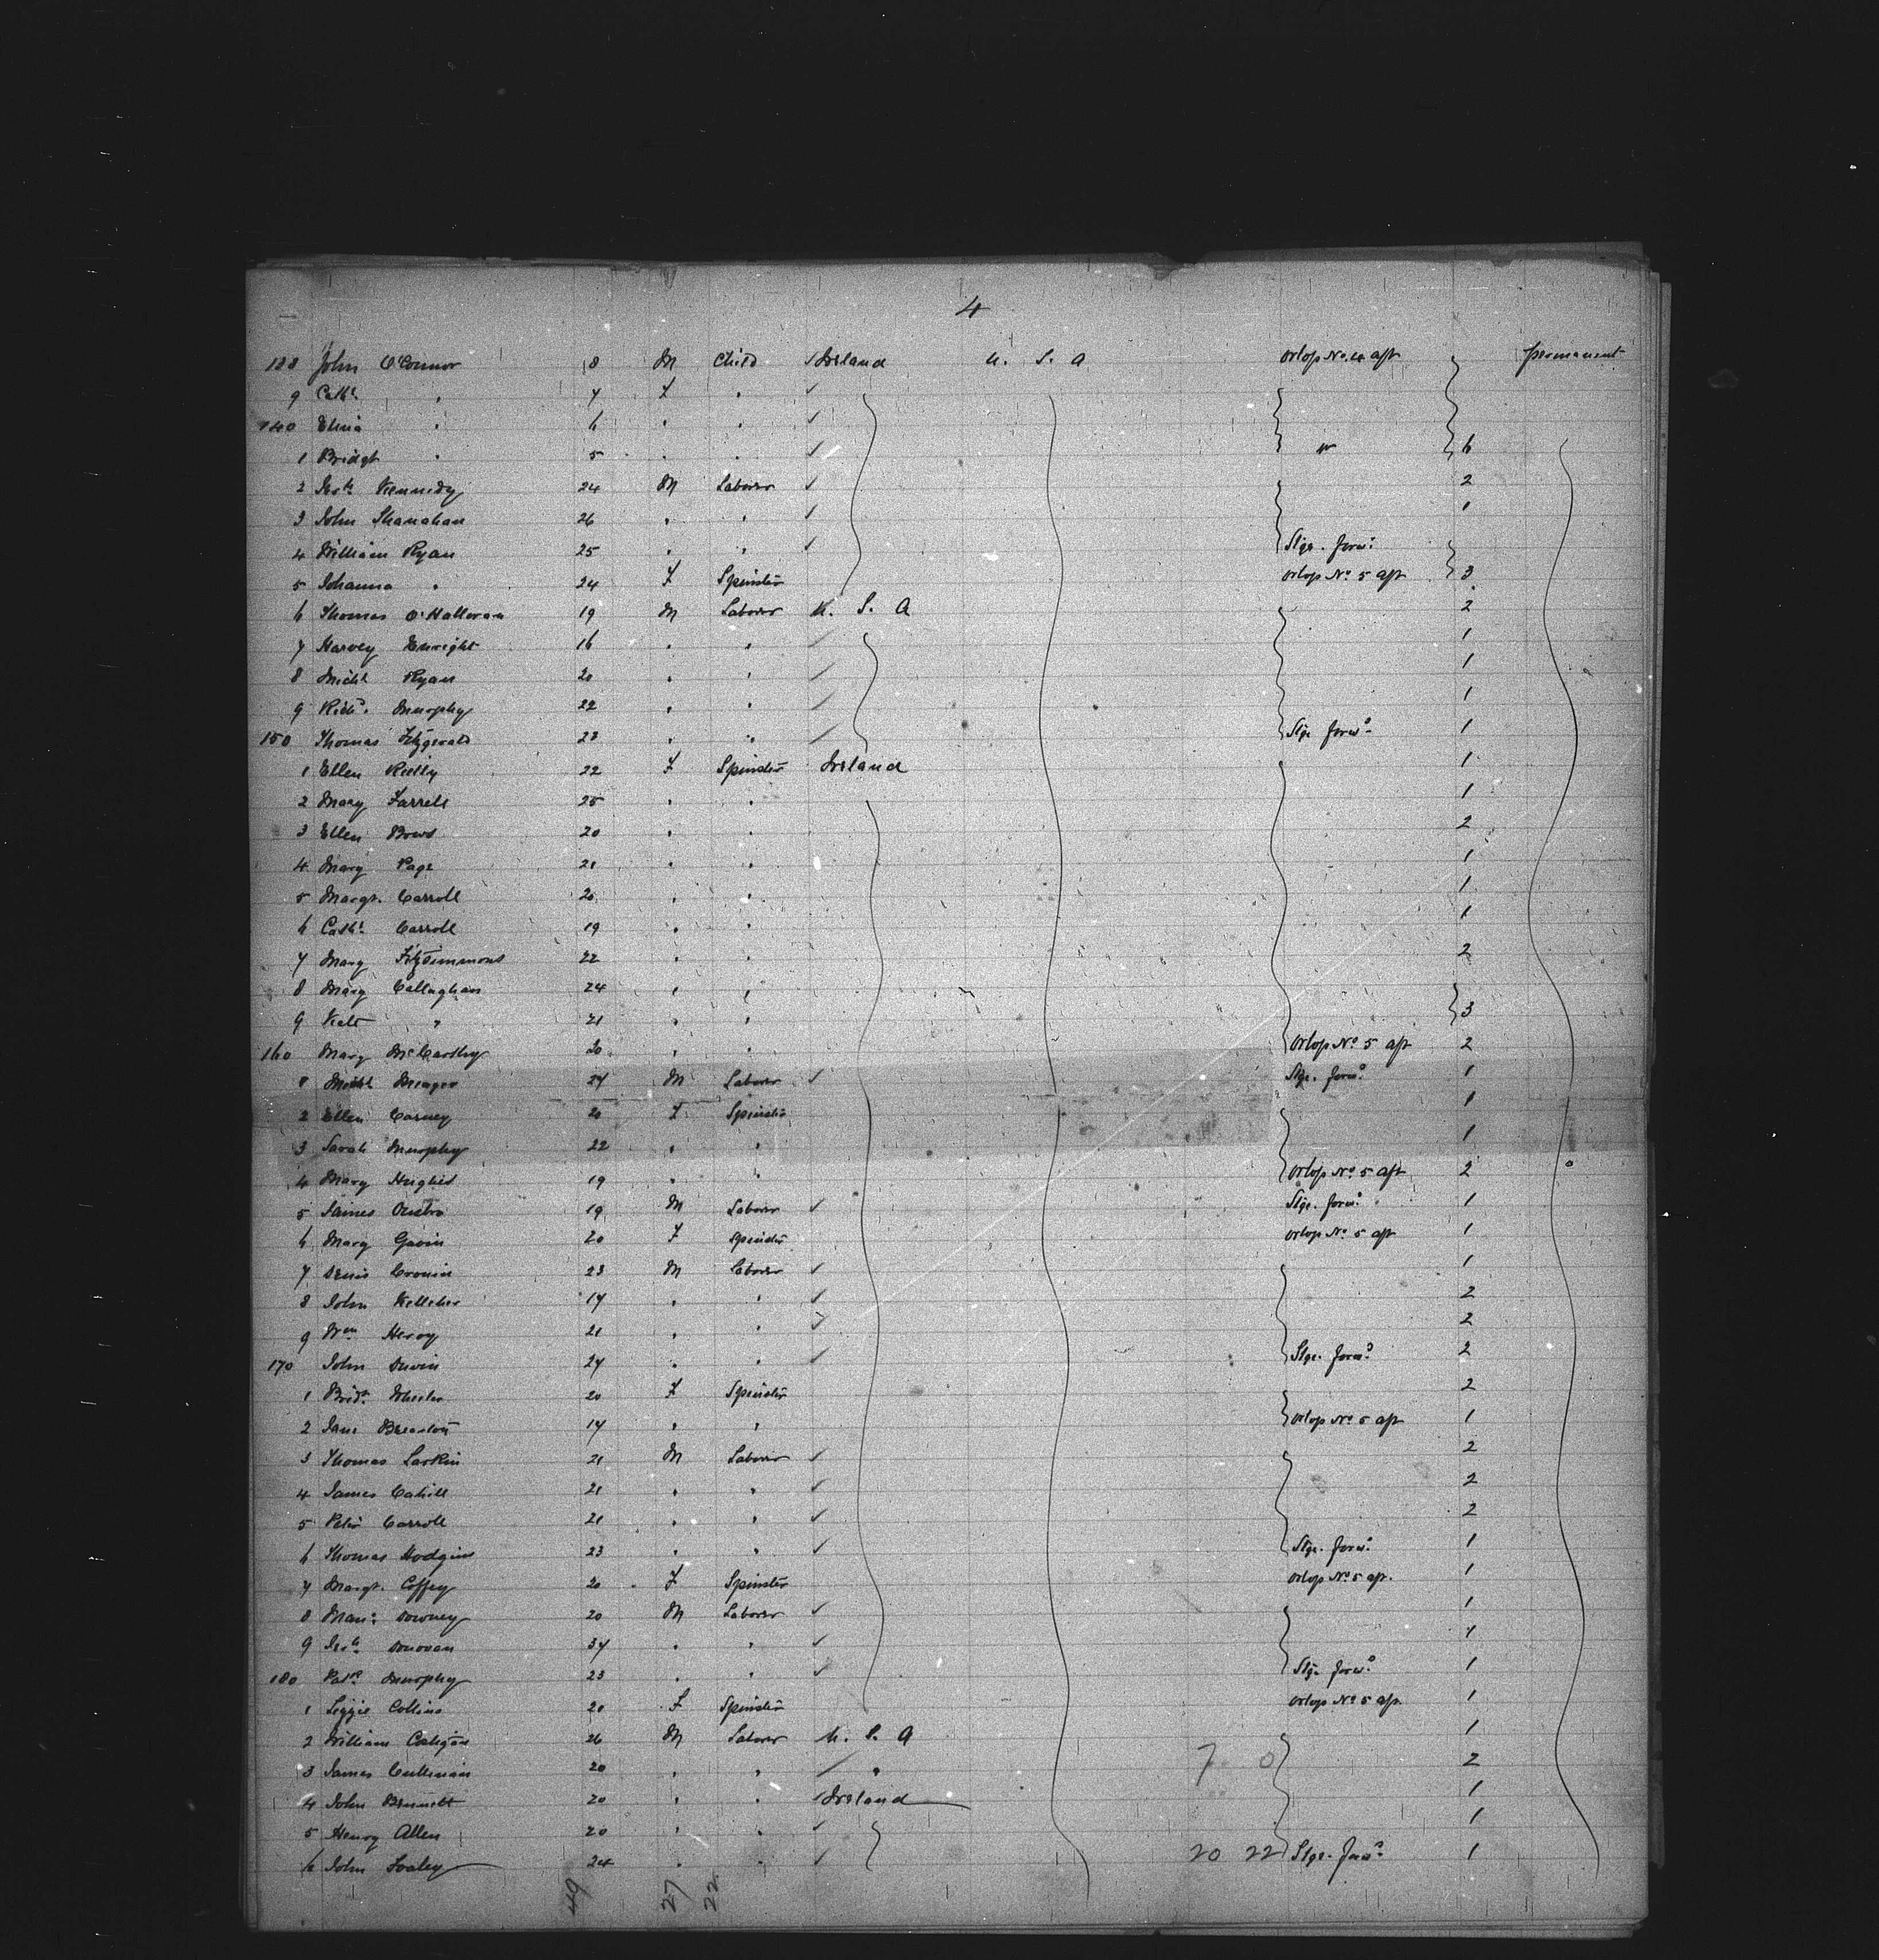 4
138 John O'Connor 8 M Child ✓ Ireland U. S. A Orlop No. 4 aft permanent
9 Cathe " 7 F " ✓
140 " 6 " " ✓
1 Bridgt " 5 " " ✓ " 6
2 Kennedy 24 M Laborer ✓ 2
3 John Shanahan 26 " " ✓ 1
4 William Ryan 25 " " ✓ Stge. forwd
5 Johanna " 24 F Spinster Orlop No. 5 aft 3
6 Thomas O'Halloran 19 M Laborer U. S. A 2
7 Harvey Enright 16 " " ✓ 1
8 Michl Ryan 20 " " ✓ 1
9 Richd. Murphy 22 " " ✓ 1
150 Thomas Fitzgerald 23 " " ✓ Stge forwd 1
1 Ellen Reilly 22 F Spinster Ireland 1
2 Mary Farrell 25 " " 1
3 Ellen 20 " " 2
4 Mary Page 21 " " 1
5 Margt. Carroll 20 " " 1
6 Cathe Carroll 19 " " 1
7 Mary Fitzsimmons 22 " " 2
8 Mary Callaghan 24 " "
9 Kate " 21 " " 3
160 Mary McCarthy 20 " " Orlop No. 5 aft 2
1 Michl 27 M Laborer ✓ Stge. forwd 1
2 Ellen Carney 20 F Spinster 1
3 Sarah Murphy 22 " " 1
4 Mary Hughes 19 " " Orlop No. 5 aft 2
5 James 19 M Laborer ✓ Stge. forwd 1
6 Mary Gavin 20 F Spinster Orlop No. 5 aft 1
7 Denis Cronin 23 M Laborer ✓ 1
8 John Kelleher 17 " " ✓ 2
9 Wm 21 " " ✓ 2
170 John 27 " " ✓ Stge. forwd 2
1 Bridt. Wheeler 20 F Spinster 2
2 Jane 17 " " Orlop No. 5 aft 1
3 Thomas Larkin 21 M Laborer ✓ 2
4 James Cahill 21 " " ✓ 2
5 Peter Carroll 21 " " ✓ 2
6 Thomas Hodgins 23 " " ✓ Stge. forwd 1
7 Margt. Coffey 20 F Spinster Orlop No. 5 aft. 1
8 Downey 20 M Laborer ✓ 1
9 Donovan 37 " " ✓ 1
180 Patk Murphy 23 " " ✓ Stge forwd 1
1 Lizzie Collins 20 F Spinster Orlop No. 5 aft. 1
2 William 26 M Laborer U. S. A 1
3 James Cullinan 20 " " ✓ " 7 0 2
4 John Bennett 20 " " ✓ Ireland 1
5 Henry Allen 20 " " ✓ 1
6 John 24 " " ✓ 20 22 Stge. forwd 1
49 27 22